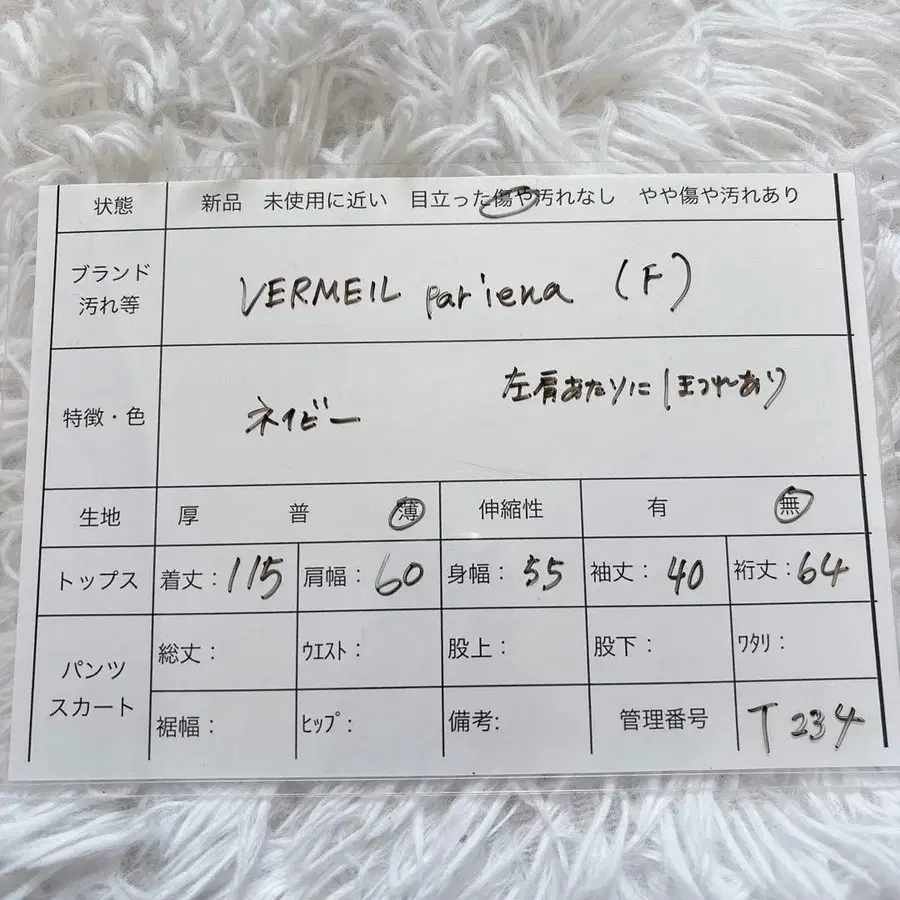 状態 新品 未使用に近い 目立った傷や汚れなし やや傷や汚れあり
ブランド 汚れ等 VERMEIL par iena (F)
特徴・色 ネイビー 左肩あたりにほつれあり
生地 厚 普 薄 伸縮性 有 無
トップス 着丈:115 肩幅:60 身幅:55 袖丈:40 裄丈:64
パンツ スカート 総丈: ウエスト: 股上: 股下: ワタリ:
裾幅: ヒップ: 備考: 管理番号 T234